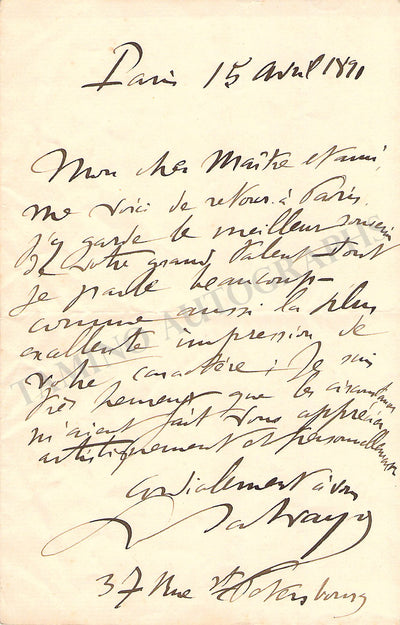 Paris 15 avril 1890
Mon cher Maître et ami,
me voici de retour à Paris.
j'y garde le meilleur souvenir
de votre grand talent dont
je parle beaucoup
comme aussi la plus
excellente impression de
votre caractère ; Je suis
très heureux que les circonstances
m'aient fait vous apprécier
artistiquement et personnellement
cordialement à vous
37 Rue St Petersbourg
TAMINO AUTOGRAPHS